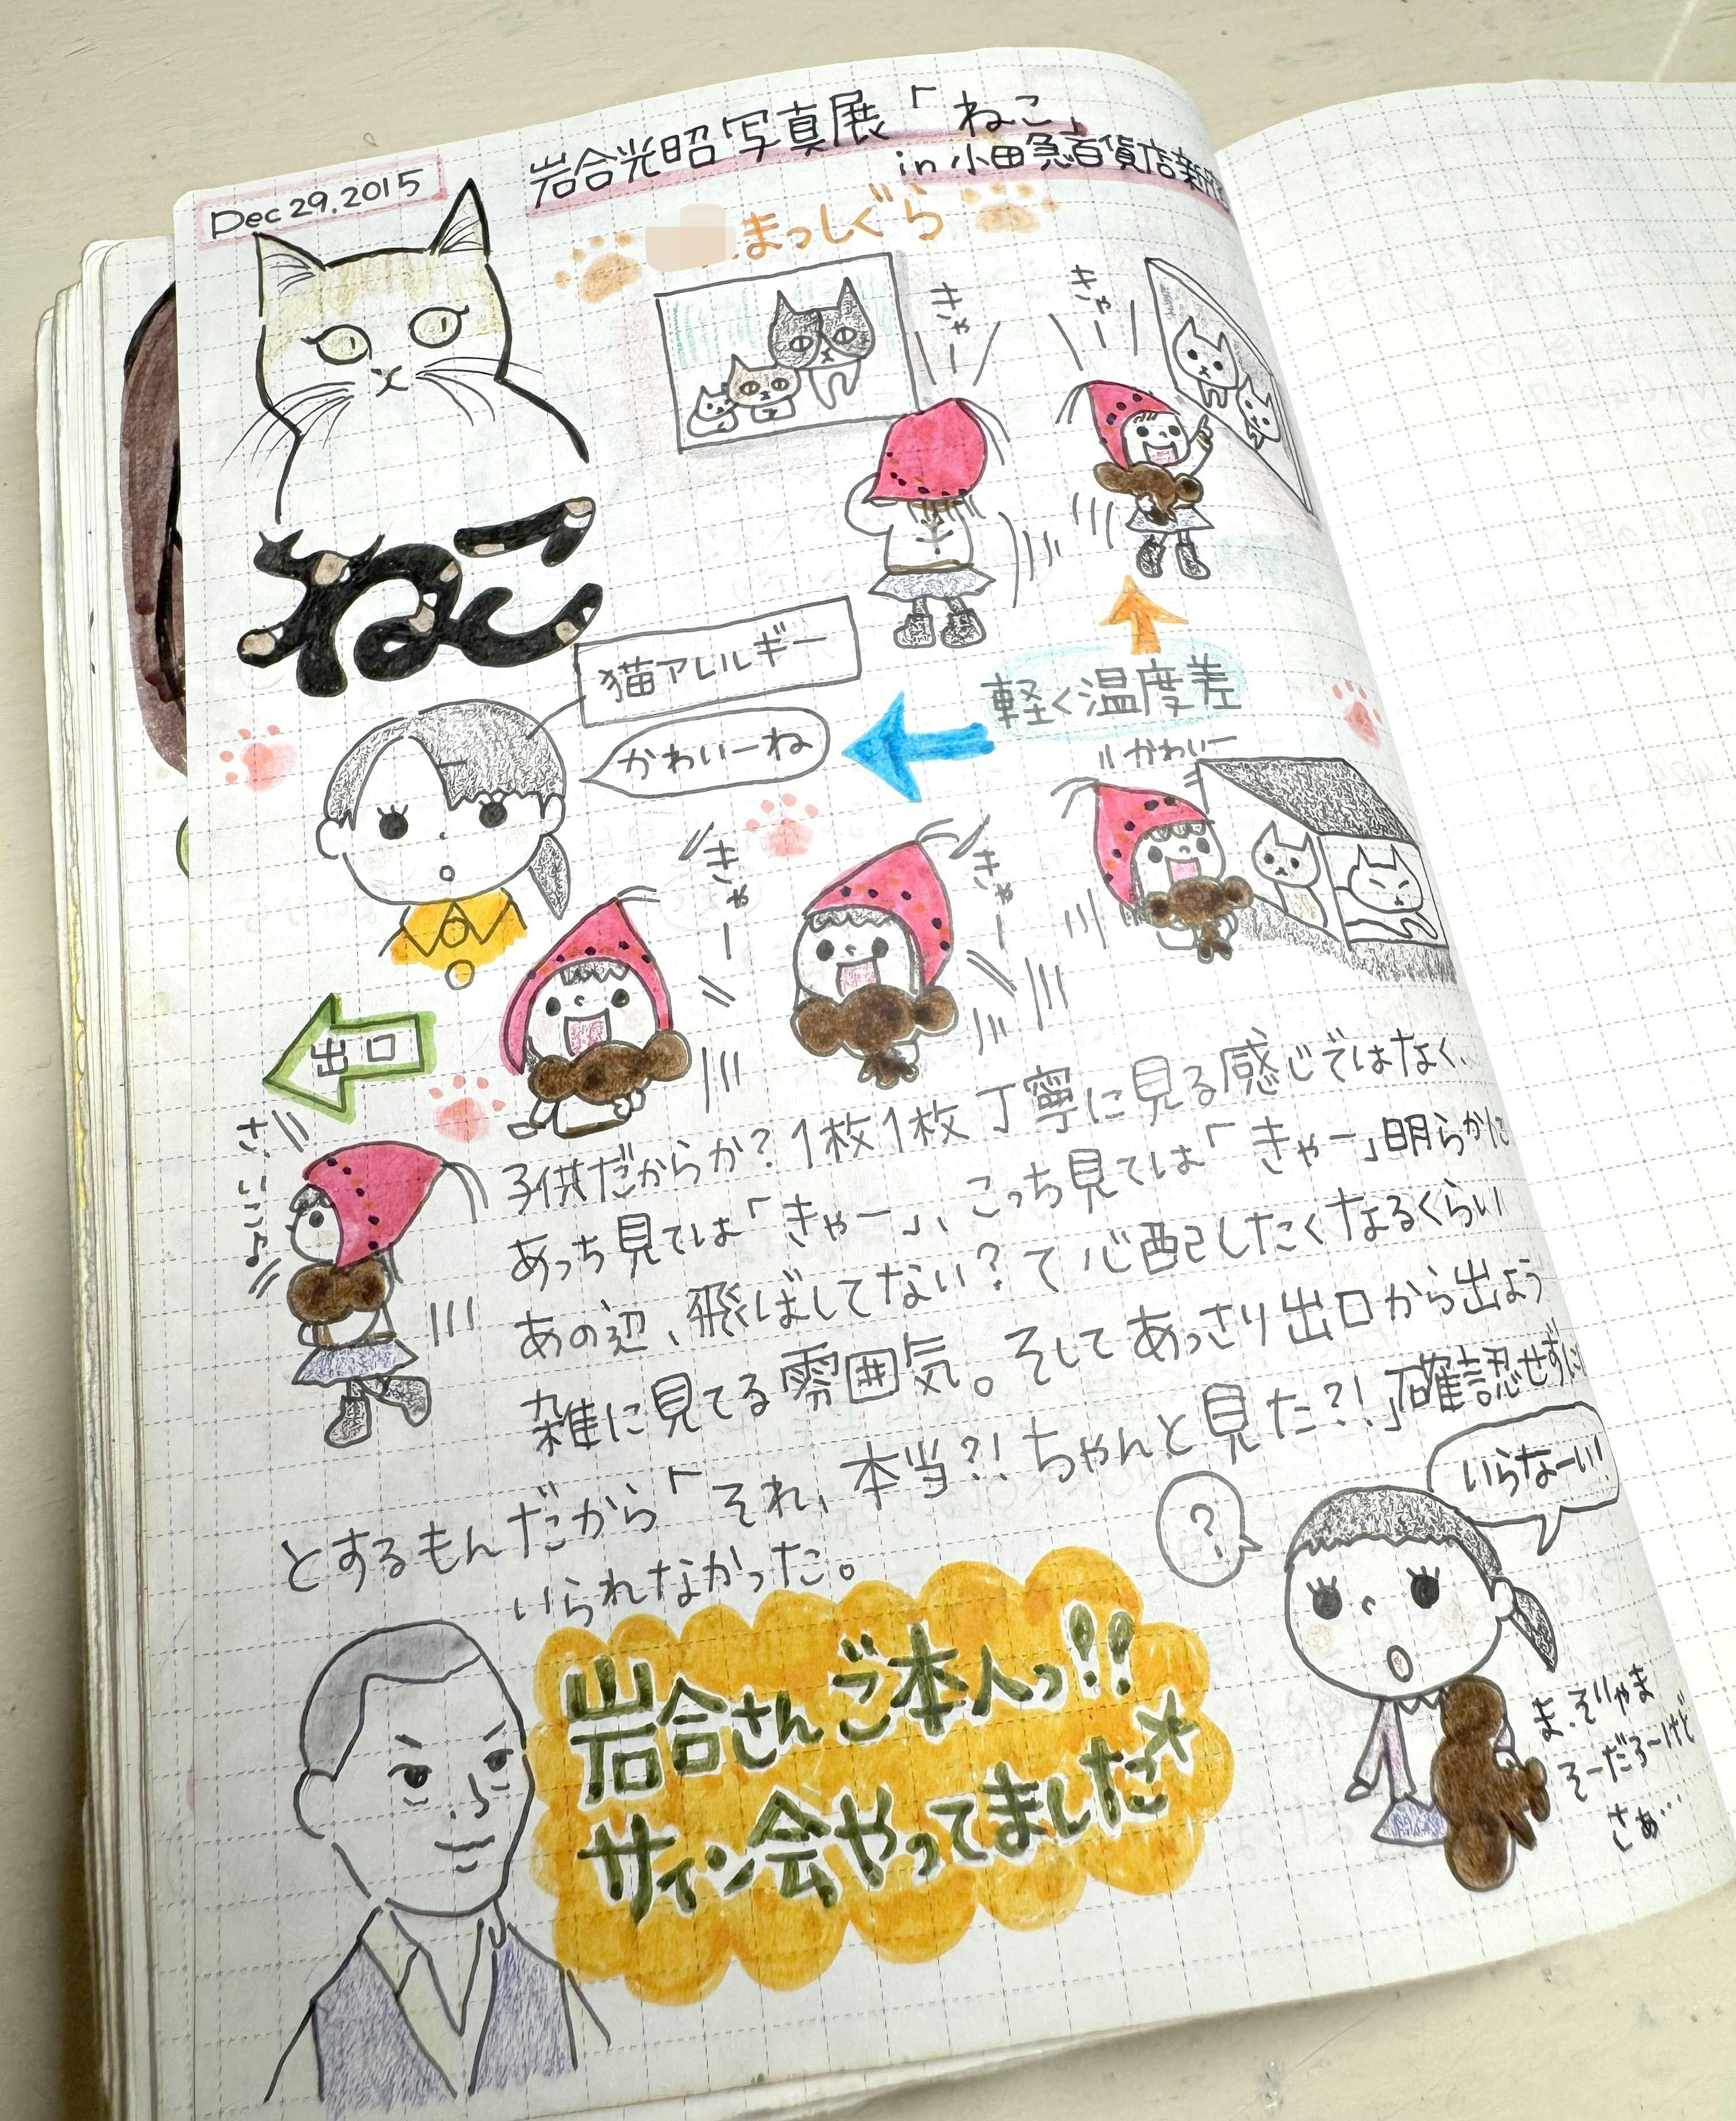 Dec 29.2015
岩合光昭写真展「ねこ」
in 小田急百貨店新宿
まっしぐら
きゃー
きゃー
ねこ
猫アレルギー
かわいーね
軽く温度差
かわいー
きゃー
きゃー
出口
さ、いこ♪
子供だからか?1枚1枚丁寧に見る感じではなく、
あっち見ては「きゃー」、こっち見ては「きゃー」明らかに
あの辺、飛ばしてない?て心配したくなるくらい
雑に見てる雰囲気。そしてあっさり出口から出よう
とするもんだから「それ、本当?!ちゃんと見た?!」確認せずに
いられなかった。
?
いらなーい!
岩合さんご本人っ!!
サイン会やってました
ま、そりゃま
そーだろーけど
さぁ…